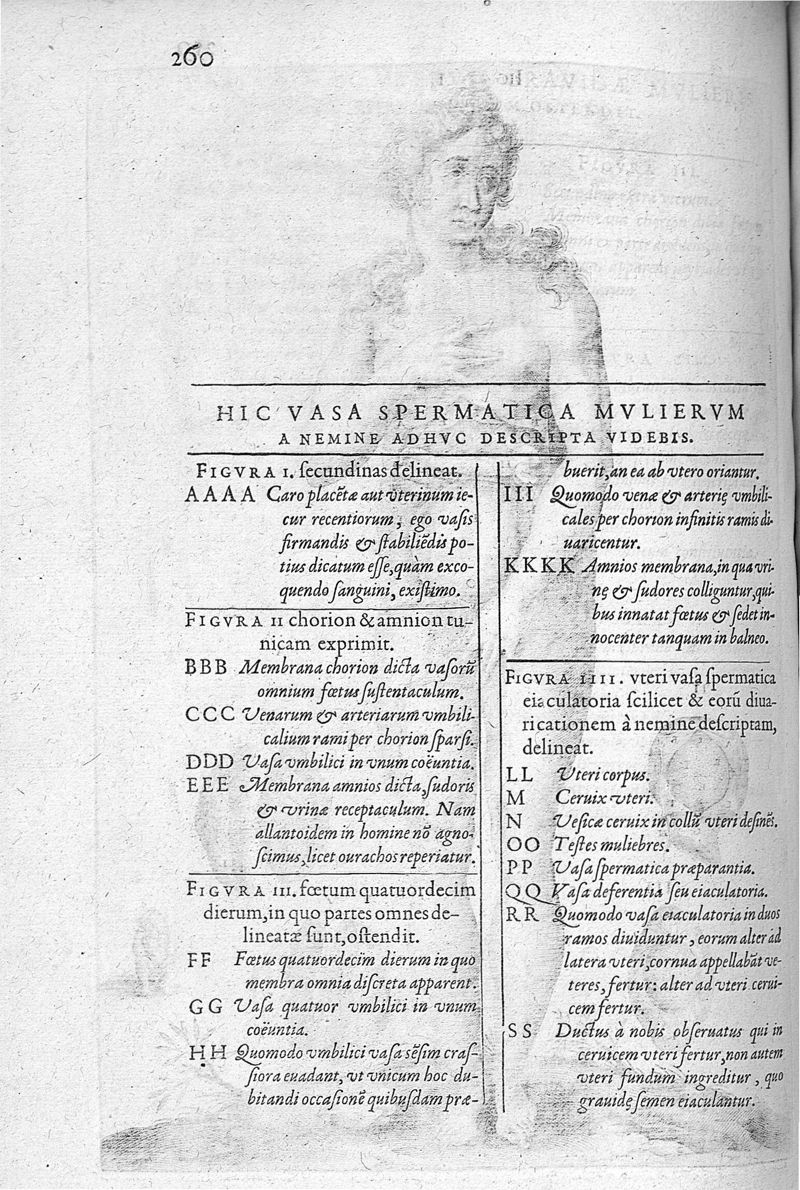 260
HIC VASA SPERMATICA MVLIERVM
A NEMINE ADHVC DESCRIPTA VIDEBIS.
FIGVRA I. ſecundinas delineat.
AAAA Caro placẽtæ aut vterinum ie-
cur recentiorum, ego vaſis
firmandis & ſtabiliẽdis po-
tius dicatum eſſe, quàm exco-
quendo ſanguini, exiſtimo.
FIGVRA II chorion & amnion tu-
nicam exprimit.
BBB Membrana chorion dicta vaſorũ
omnium fœtus ſuſtentaculum.
CCC Venarum & arteriarum vmbili-
calium rami per chorion ſparſi.
DDD Vaſa vmbilici in vnum coëuntia.
EEE Membrana amnios dicta, ſudoris
& vrinæ receptaculum. Nam
allantoidem in homine nõ agno-
ſcimus, licet ourachos reperiatur.
FIGVRA III. fœtum quatuordecim
dierum, in quo partes omnes de-
lineatæ ſunt, oſtendit.
FF Fœtus quatuordecim dierum in quo
membra omnia diſcreta apparent.
GG Vaſa quatuor vmbilici in vnum
coëuntia.
HH Quomodo vmbilici vaſa sẽſim craſ-
ſiora euadant, vt vnicum hoc du-
bitandi occaſionẽ quibuſdam præ-
buerit, an ea ab vtero oriantur.
III Quomodo venæ & arterię vmbili-
cales per chorion infinitis ramis di-
uaricentur.
KKKK Amnios membrana, in qua vri-
nę & ſudores colliguntur, qui-
bus innatat fœtus & ſedet in-
nocenter tanquam in balneo.
FIGVRA IIII. vteri vaſa ſpermatica
eiaculatoria ſcilicet & eorũ diua-
ricationem à nemine deſcriptam,
delineat.
LL Vteri corpus.
M Ceruix vteri.
N Veſicæ ceruix in collũ vteri deſinẽs.
OO Teſtes muliebres.
PP Vaſa ſpermatica præparantia.
QQ Vaſa deferentia ſeu eiaculatoria.
RR Quomodo vaſa eiaculatoria in duos
ramos diuiduntur, eorum alter ad
latera vteri, cornua appellabãt ve-
teres, fertur: alter ad vteri cerui-
cem fertur.
SS Ductus à nobis obſeruatus qui in
ceruicem vteri fertur, non autem
vteri fundum ingreditur, quo
grauidę ſemen eiaculantur.